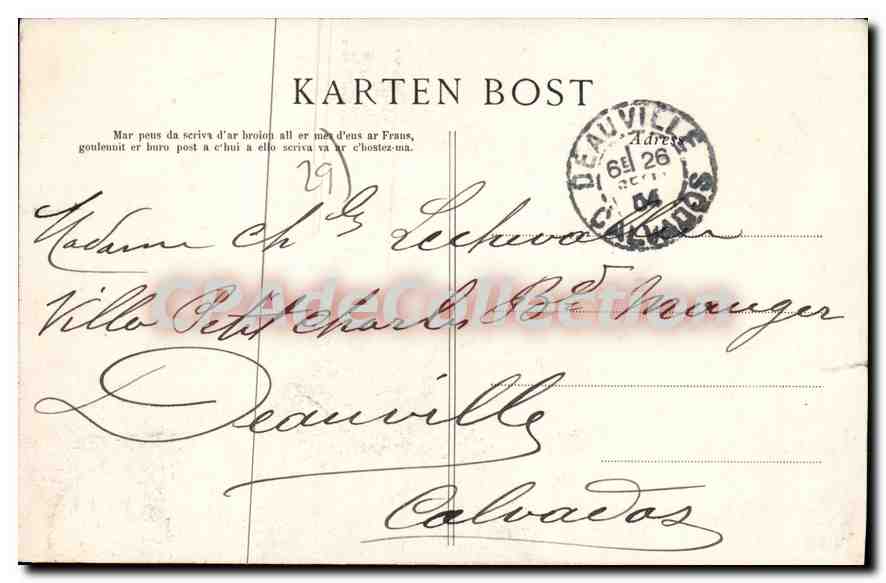 KARTEN BOST
Mar peus da scriva d'ar broion all er mez d'eus ar Frans,
goulennit er buro post a c'hui a ello scriva va ar c'hostez-ma.
Adress
DEAUVILLE
6E 26
04
CALVADOS
29
Madame Ch les Lechevallier
Villa Petit Charles Bd Mauger
Deauville
Calvados
CPAdeCollection